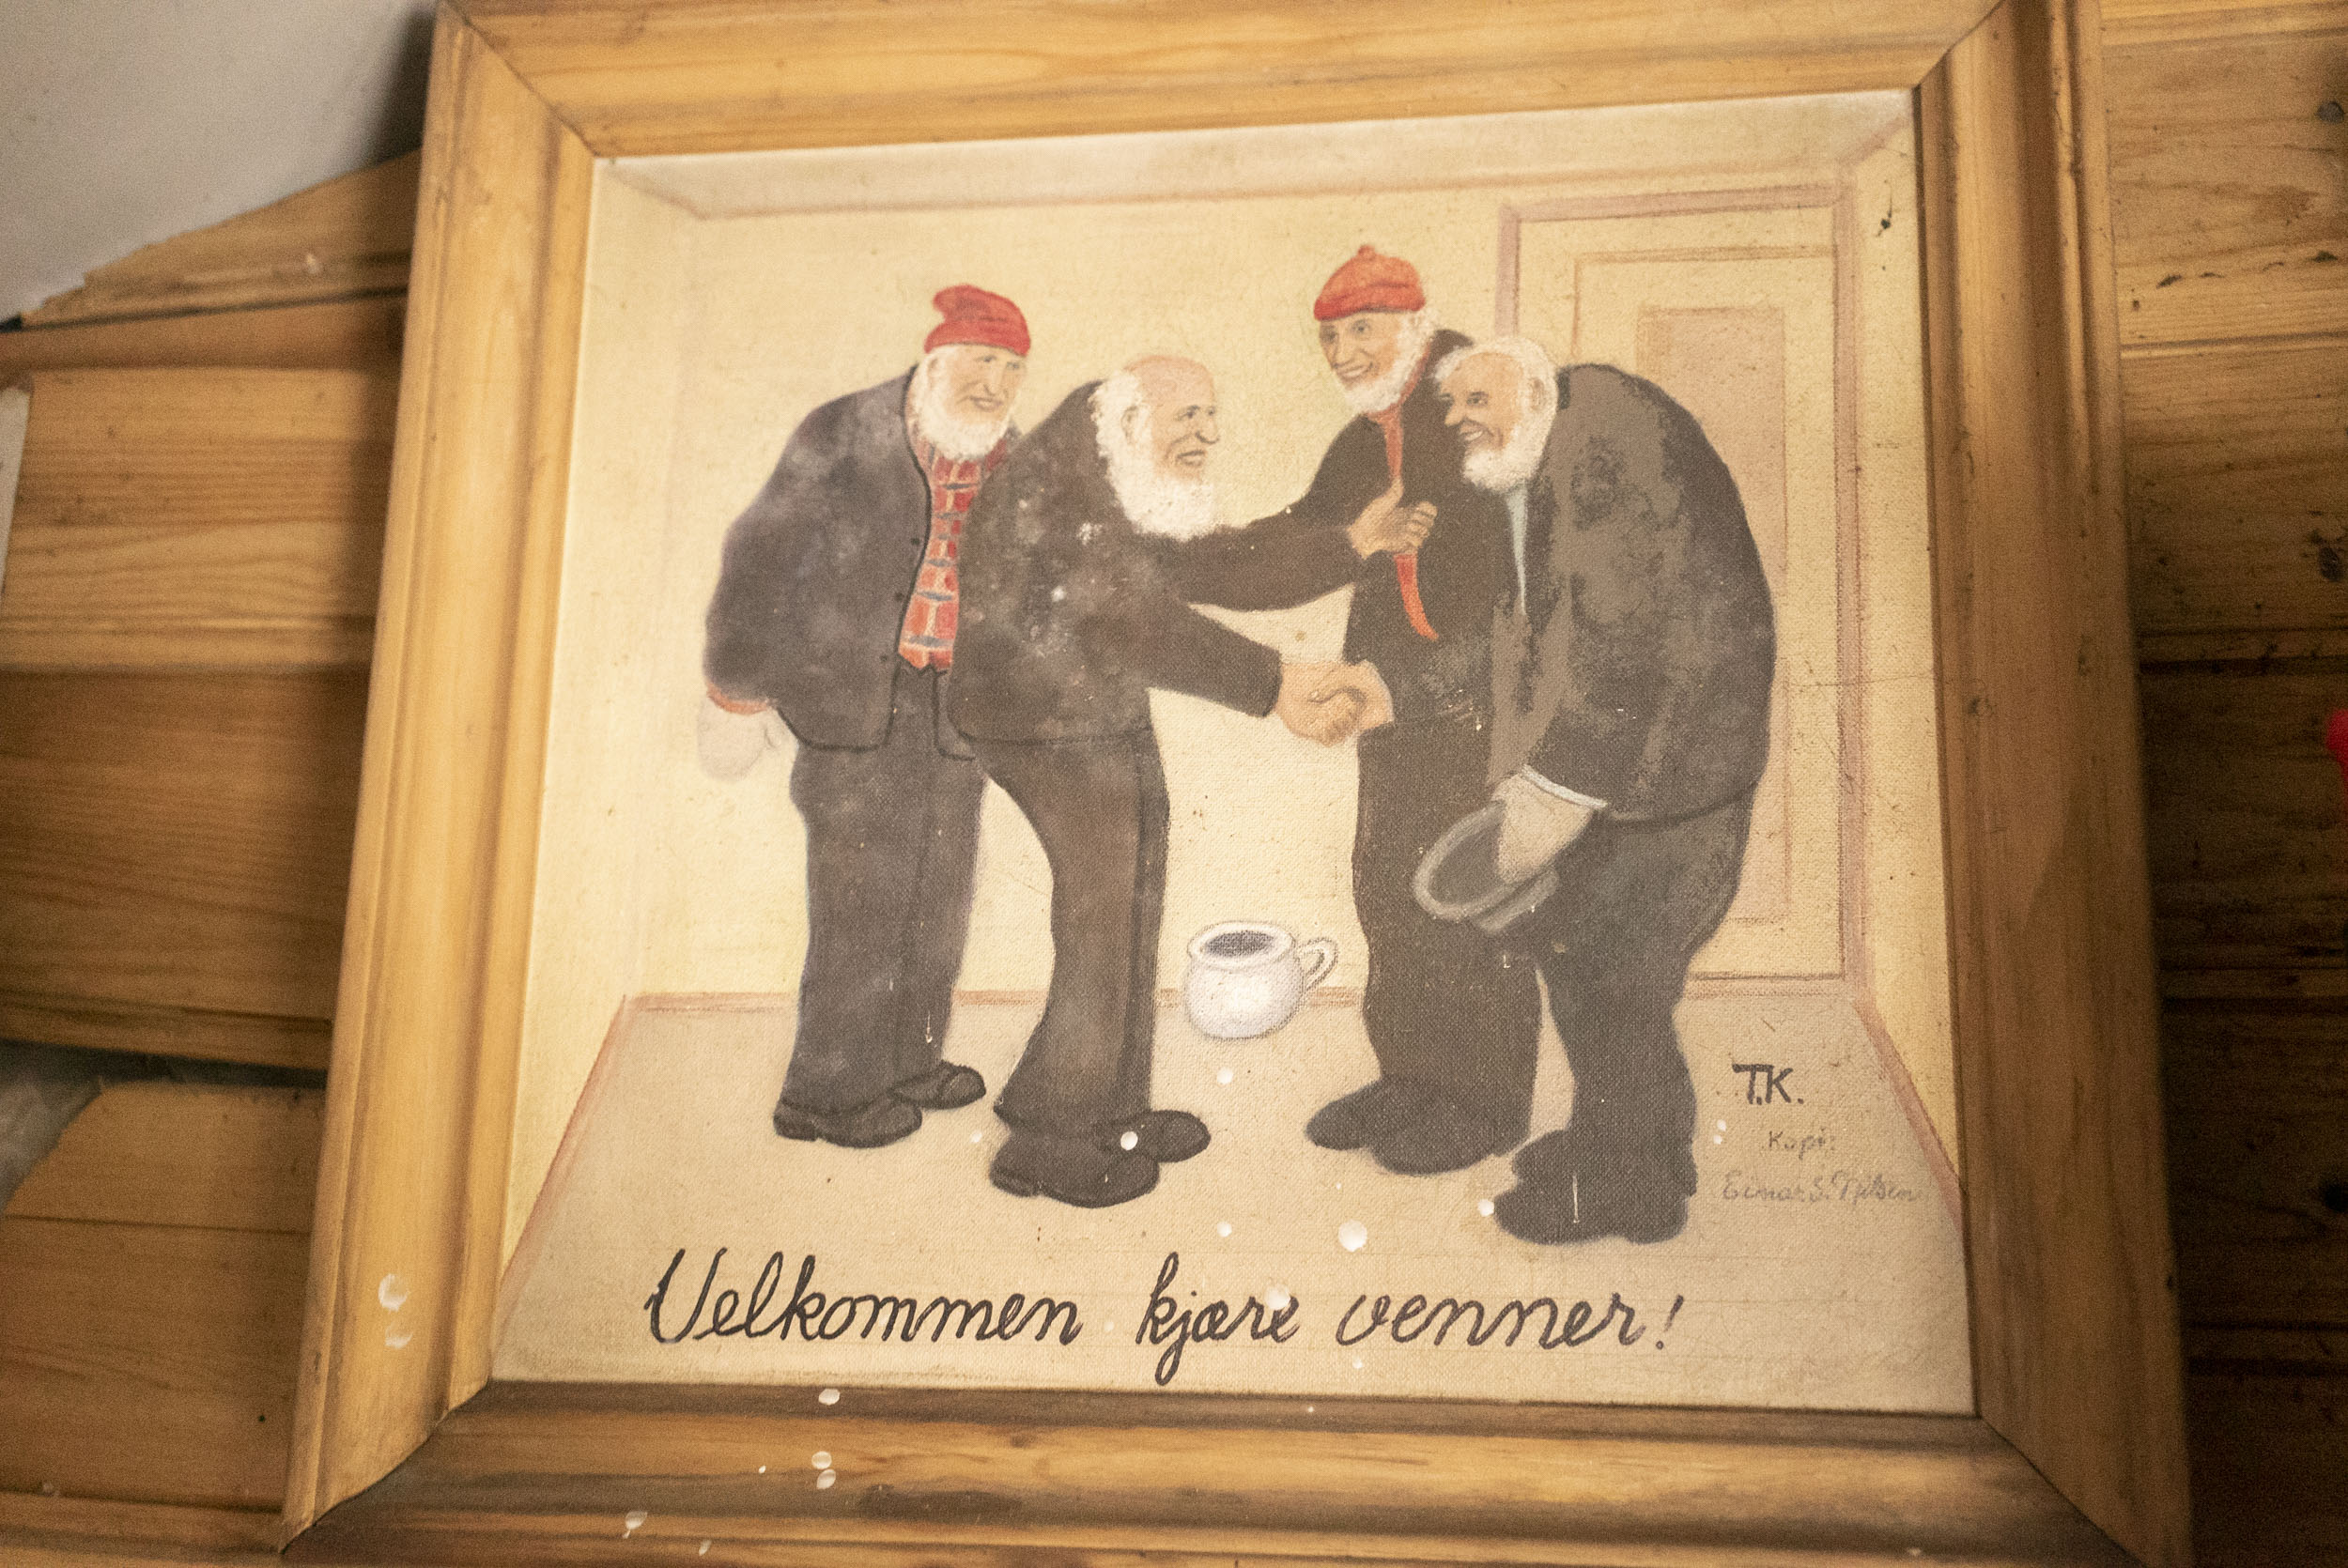 T.K.
Kopi:
Einar S. Nilsen
Velkommen kjære venner!